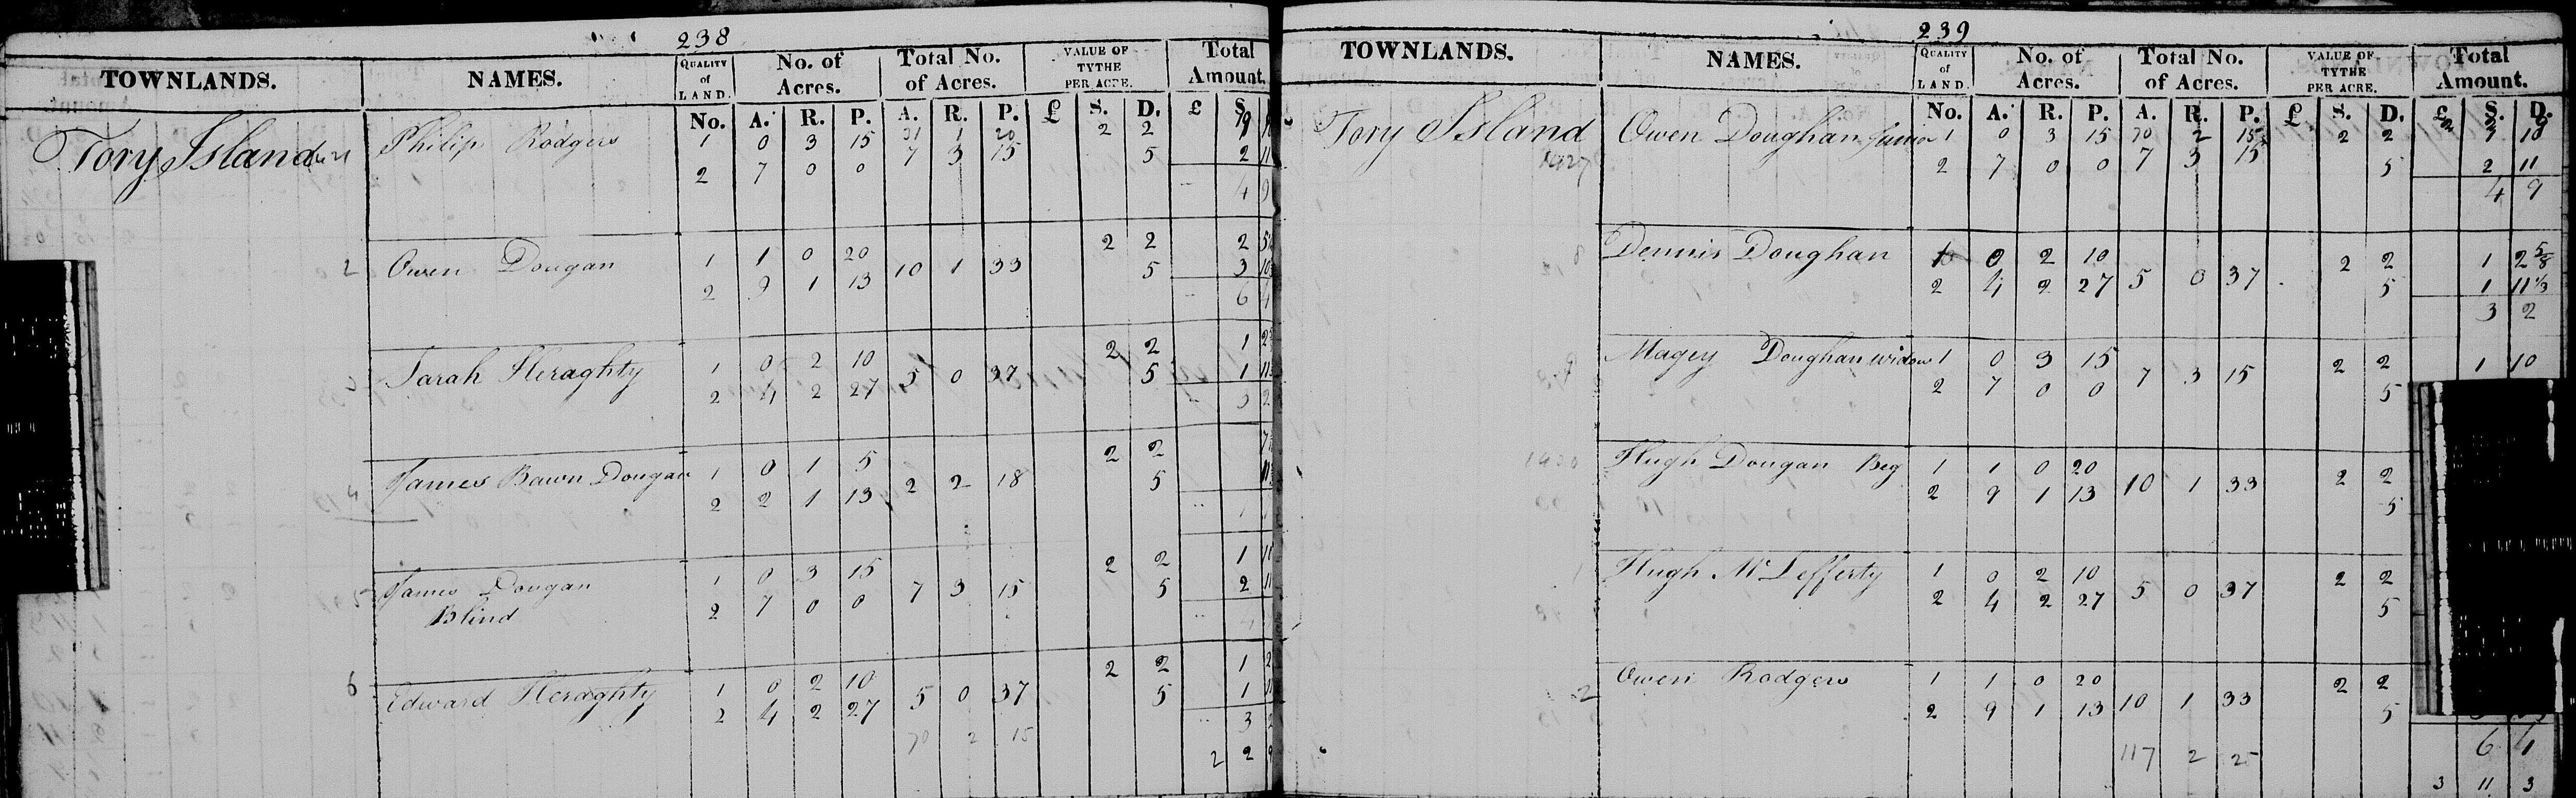 238
TOWNLANDS. NAMES. QUALITY of LAND. No. of Acres. Total No. of Acres. VALUE OF TYTHE PER ACRE. Total Amount.
No. A. R. P. A. R. P. £ S. D. £ S.
31 1 20
Tory Island Philip Rodgers 1 0 3 15 7 3 15 2 2
2 7 0 0 5 2 11
4 9
2 Owen Dougan 1 1 0 20 10 1 33 2 2 2
2 9 1 13 5 3
6 4
3 Sarah Heraghty 1 0 2 10 5 0 37 2 2 1
2 4 2 27 5 1 11
3 2
4 James Bawn Dougan 1 0 1 5 2 2 18 2 2
2 2 1 13 5
5 James Dougan 1 0 3 15 7 3 15 2 2 1
Blind 2 7 0 0 5 2 11
4
6 Edward Heraghty 1 0 2 10 5 0 37 2 2 1
2 4 2 27 5 1
3
70 2 15
2 2 9
239
TOWNLANDS. NAMES. QUALITY of LAND. No. of Acres. Total No. of Acres. VALUE OF TYTHE PER ACRE. Total Amount.
No. A. R. P. A. R. P. £ S. D. £ S. D.
70 2 15
Tory Island Owen Doughan Junior 1 0 3 15 7 3 15 2 2 1 10
2 7 0 0 5 2 11
4 9
8 Dennis Doughan 1 0 2 10 5 0 37 2 2 1 2 5/8
2 4 2 27 5 1 11 1/3
3 2
9 Magey Doughan widow 1 0 3 15 7 3 15 2 2 1 10
2 7 0 0 5
Hugh Dougan Beg 1 1 0 20 10 1 33 2 2
2 9 1 13 5
Hugh McLefferty 1 0 2 10 5 0 37 2 2
2 4 2 27 5
2 Owen Rodgers 1 1 0 20 10 1 33 2 2
2 9 1 13 5
6 4
117 2 25
3 11 3